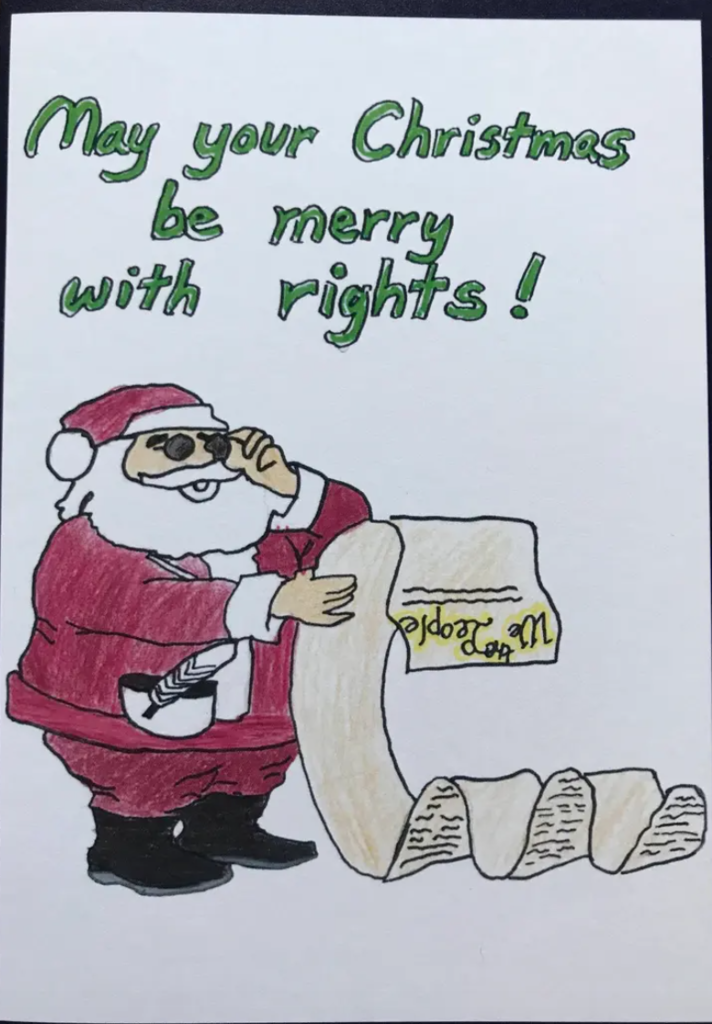 May your Christmas
be merry
with rights!
We the
People